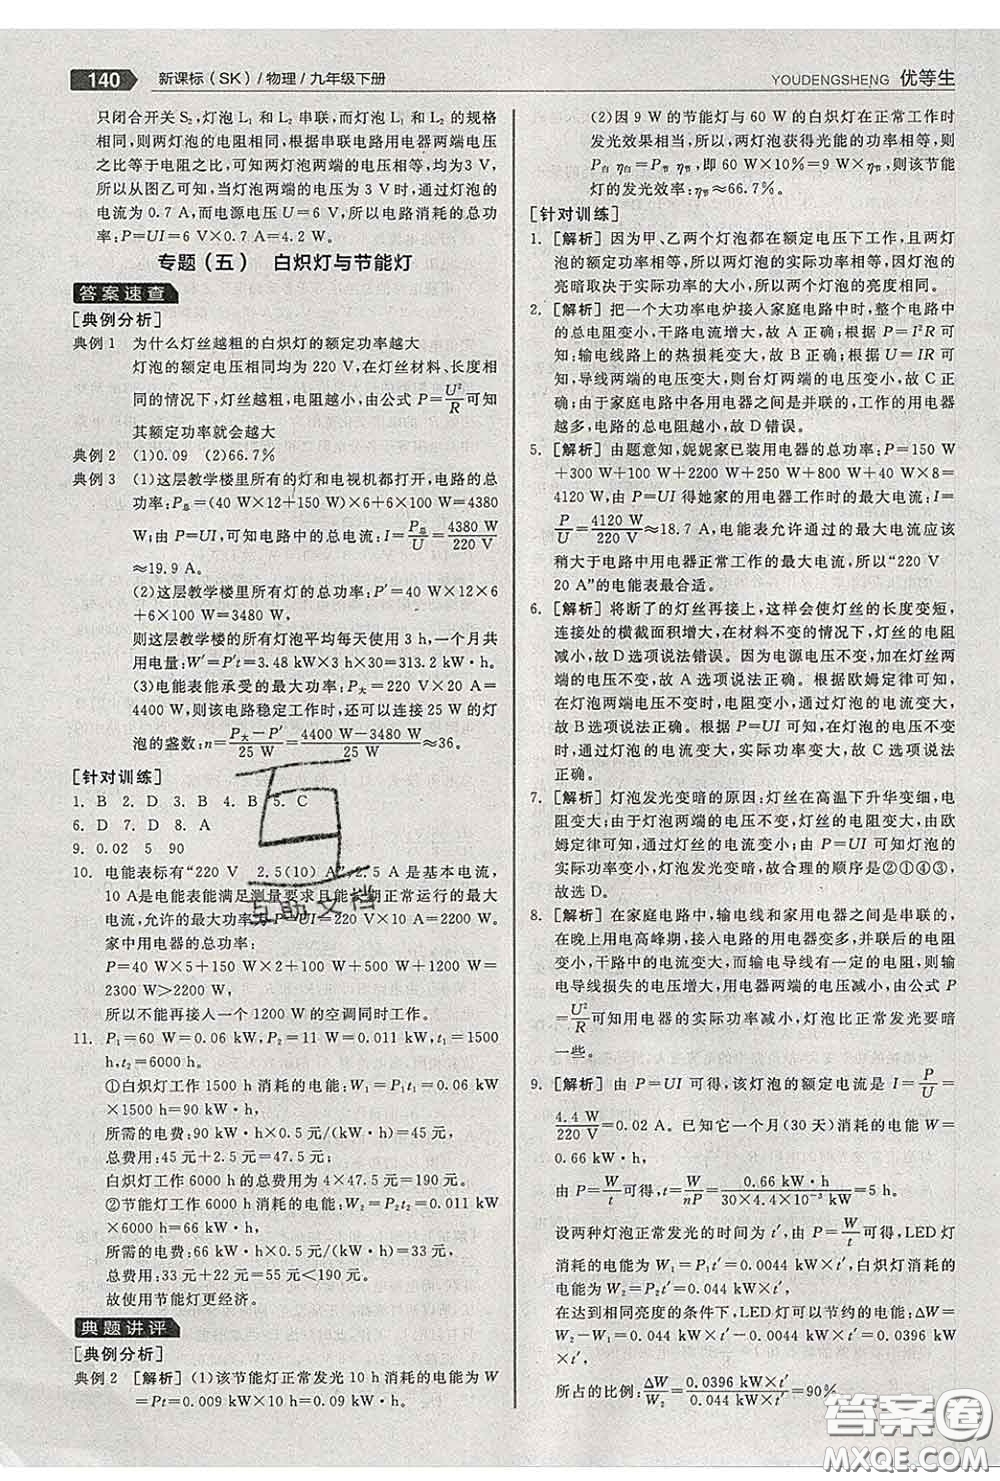 140 新课标（SK）/物理/九年级下册
YOUDENGSHENG 优等生
只闭合开关 S₂，灯泡 L₁ 和 L₂ 串联，而灯泡 L₁ 和 L₂ 的规格
相同，则两灯泡的电阻相同，根据串联电路用电器两端电压
之比等于电阻之比，可知两灯泡两端的电压相等，均为3 V，
所以从图乙可知，当灯泡两端的电压为 3 V 时，通过灯泡的
电流为 0.7 A，而电源电压 U＝6 V，所以电路消耗的总功
率：P＝UI＝6 V×0.7 A＝4.2 W。
专题（五） 白炽灯与节能灯
答案速查
[典例分析]
典例 1 为什么灯丝越粗的白炽灯的额定功率越大
灯泡的额定电压相同均为 220 V，在灯丝材料、长度相
同的情况下，灯丝越粗，电阻越小，由公式 P＝U²/R可知
其额定功率就会越大
典例 2 (1)0.09 (2)66.7%
典例 3 (1)这层教学楼里所有的灯和电视机都打开，电路的总
功率：P总＝(40 W×12＋150 W)×6＋6×100 W＝4380
W；由 P＝UI，可知电路中的总电流：I＝P总/U＝4380 W/220 V
≈19.9 A。
(2)这层教学楼里所有灯的总功率：P′＝40 W×12×6
＋6×100 W＝3480 W，
则这层教学楼的所有灯泡平均每天使用 3 h，一个月共
用电量：W′＝P′t＝3.48 kW×3 h×30＝313.2 kW·h。
(3)电能表能承受的最大功率：P大＝220 V×20 A＝
4400 W，则该电路稳定工作时，还可以连接 25 W 的灯
泡的盏数：n＝P大－P′/25 W＝4400 W－3480 W/25 W≈36。
[针对训练]
1. B 2. D 3. B 4. B 5. C
6. D 7. D 8. A
9. 0.02 5 90
10. 电能表标有“220 V 2.5(10) A”，2.5 A 是基本电流，
10 A是电能表能满足测量要求且能长期正常运行的最大
电流，允许的最大功率为 P＝UI＝220 V×10 A＝2200 W。
家中用电器的总功率：
P＝40 W×5＋150 W＋100 W＋1200 W＋650 W＝
2300 W＞2200 W，
所以不能再接人一个 1200 W 的空调同时工作。
11. P₁＝60 W＝0.06 kW，P₂＝11 W＝0.011 kW，t₁＝1500
h，t₂＝6000 h。
①白炽灯工作 1500 h 消耗的电能：W₁＝P₁t₁＝0.06 kW
×1500 h＝90 kW·h，
所需的电费：90 kW·h×0.5 元/(kW·h)＝45 元，
总费用：45 元＋2.5 元＝47.5 元；
白炽灯工作 6000 h 总费用为 4×47.5 元＝190 元。
②节能灯工作 6000 h 消耗的电能：W₂＝P₂t₂＝0.011 kW
×6000 h＝66 kW·h，
所需的电费：66 kW·h×0.5 元/(kW·h)＝33 元，
总费用：33 元＋22 元＝55 元＜190 元。
故使用节能灯更经济。
典题讲评
[典例分析]
典例 2 [解析] (1)该节能灯正常发光 10 h 消耗的电能为 W
＝Pt＝0.009 kW×10 h＝0.09 kW·h。
(2)因 9 W 的节能灯与 60 W 的白炽灯在正常工作时
发光效果相当，所以，两灯泡获得光能的功率相等，则
P白 η白＝P节 η节，即 60 W×10%＝9 W×η节，所以该节能
灯的发光效率：η节≈66.7%。
[针对训练]
1. [解析] 因为甲、乙两个灯泡都在额定电压下工作，且两
灯泡的额定功率相同，所以两灯泡的实际功率相同，因灯泡
的亮暗取决于实际功率的大小，所以灯泡的亮度相同。
2. [解析] 把一个大功率电炉接人家庭电路中时，整个电路中
的总电阻变小，干路电流增大，故 A 正确；根据 P＝I²R 可
知：输电线路上的热损耗变大，故 B 正确；根据 U＝IR 可
知，导线两端的电压变大，则台灯两端的电压变小，故 C 正
确；由于家庭电路中各用电器之间是并联的，工作的用电器
越多，电路的总电阻越小，故 D 错误。
5. [解析] 由题意知，妮妮家已装用电器的总功率：P＝150 W
＋300 W＋100 W＋2200 W＋250 W＋800 W＋40 W×8＝
4120 W，由 P＝UI 得她家的用电器工作时的最大电流：I＝
P/U＝4120 W/220 V≈18.7 A，电能表允许通过的最大电流应该
稍大于电路中用电器正常工作的最大电流，所以“220 V
20 A”的电能表最合适。
6. [解析] 将断了的灯丝再接上，这样会使灯丝的长度变短，
连接处的横截面积变大，在材料不变的情况下，灯丝的电阻
减小，故 D 选项说法错误。因为电源电压不变，所以灯丝两
端的电压不变，故 A 选项说法正确。根据欧姆定律可知，
在灯丝两端电压不变时，电阻变小，通过灯丝的电流变大，
故 B 选项说法正确。根据 P＝UI 可知，在灯泡的电压不变
时，通过灯泡的电流变大，实际功率变大，故 C 选项说法
正确。
7. [解析] 灯泡发光变暗的原因：灯丝在高温下升华变细，电阻
变大；由于灯泡两端的电压不变，灯丝的电阻变大，由欧
姆定律可知，通过灯丝的电流变小；由于灯丝的电流变小，
灯泡的实际功率变小，灯泡发光变暗，故合理的顺序是②①④③，
故选 D。
8. [解析] 在家庭电路中，输电线和家用电器之间是串联的，
在晚上用电高峰期，接入电路的电器变多，并联后的电阻变
小，干路中的电流变大，而输电导线有一定的电阻，则输电
导线损失的电压增大，用电器两端的电压变小，根据公式
P＝U²/R可知用电器的实际功率减小，灯泡比正常发光要暗
一些。
9. [解析] 由 P＝UI 可得，该灯泡的额定电流是 I＝P/U＝
4.4 W/220 V＝0.02 A。已知它一个月(30 天)消耗的电能 W＝
0.66 kW·h，
由 P＝W/t可得，t＝W/nP＝0.66 kW·h/30×4.4×10⁻³ kW＝5 h。
设两种灯泡正常发光的时间为 t′，由 P＝W/t可得，LED 灯
消耗的电能为 W₁＝P₁t′＝0.0044 kW×t′，白炽灯消耗的
电能为 W₂＝P₂t′＝0.044 kW×t′，
在达到相同亮度的条件下，LED灯可以节约的电能：ΔW＝
W₂－W₁＝0.044 kW×t′－0.0044 kW×t′＝0.0396 kW
×t′，
所占的比例：ΔW/W₂＝0.0396 kW×t′/0.044 kW×t′＝90%。
互助文档
答案圈
MXQE.COM